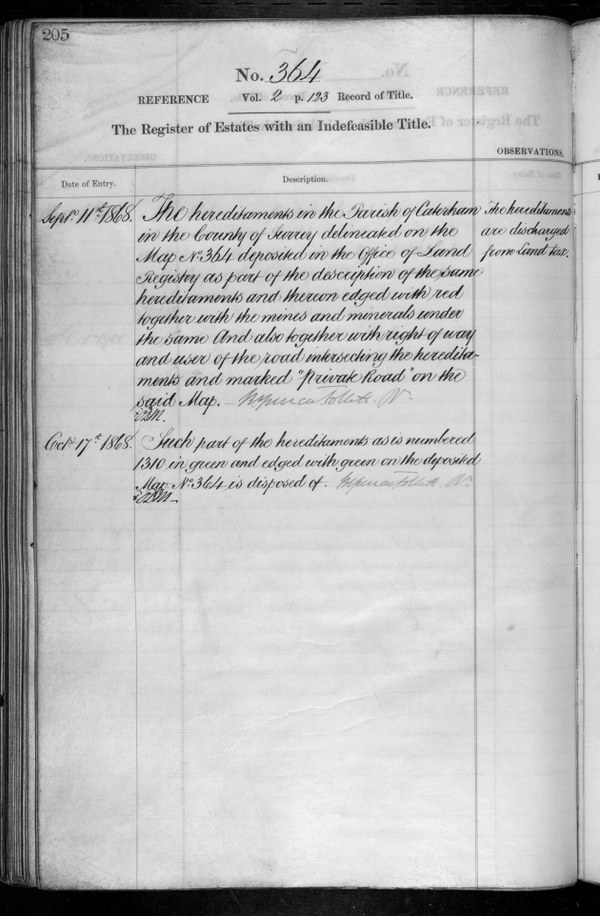 205
No. 364
REFERENCE Vol. 2 p. 123 Record of Title.
The Register of Estates with an Indefeasible Title.
OBSERVATIONS.
Date of Entry. Description.
Septr. 11th. 1868. The hereditaments in the Parish of Caterham
in the County of Surrey delineated on the
Map No. 364 deposited in the Office of Land
Registry as part of the description of the same
hereditaments and thereon edged with red
together with the mines and minerals under
the same And also together with right of way
and user of the road intersecting the heredita-
ments and marked "Private Road" on the
said Map. Follett. Rr.
The hereditaments
are discharged
from Land tax.
Octr. 17th. 1868. Such part of the hereditaments as is numbered
1310 in green and edged with green on the deposited
Map No. 364 is disposed of. Follett. Rr.